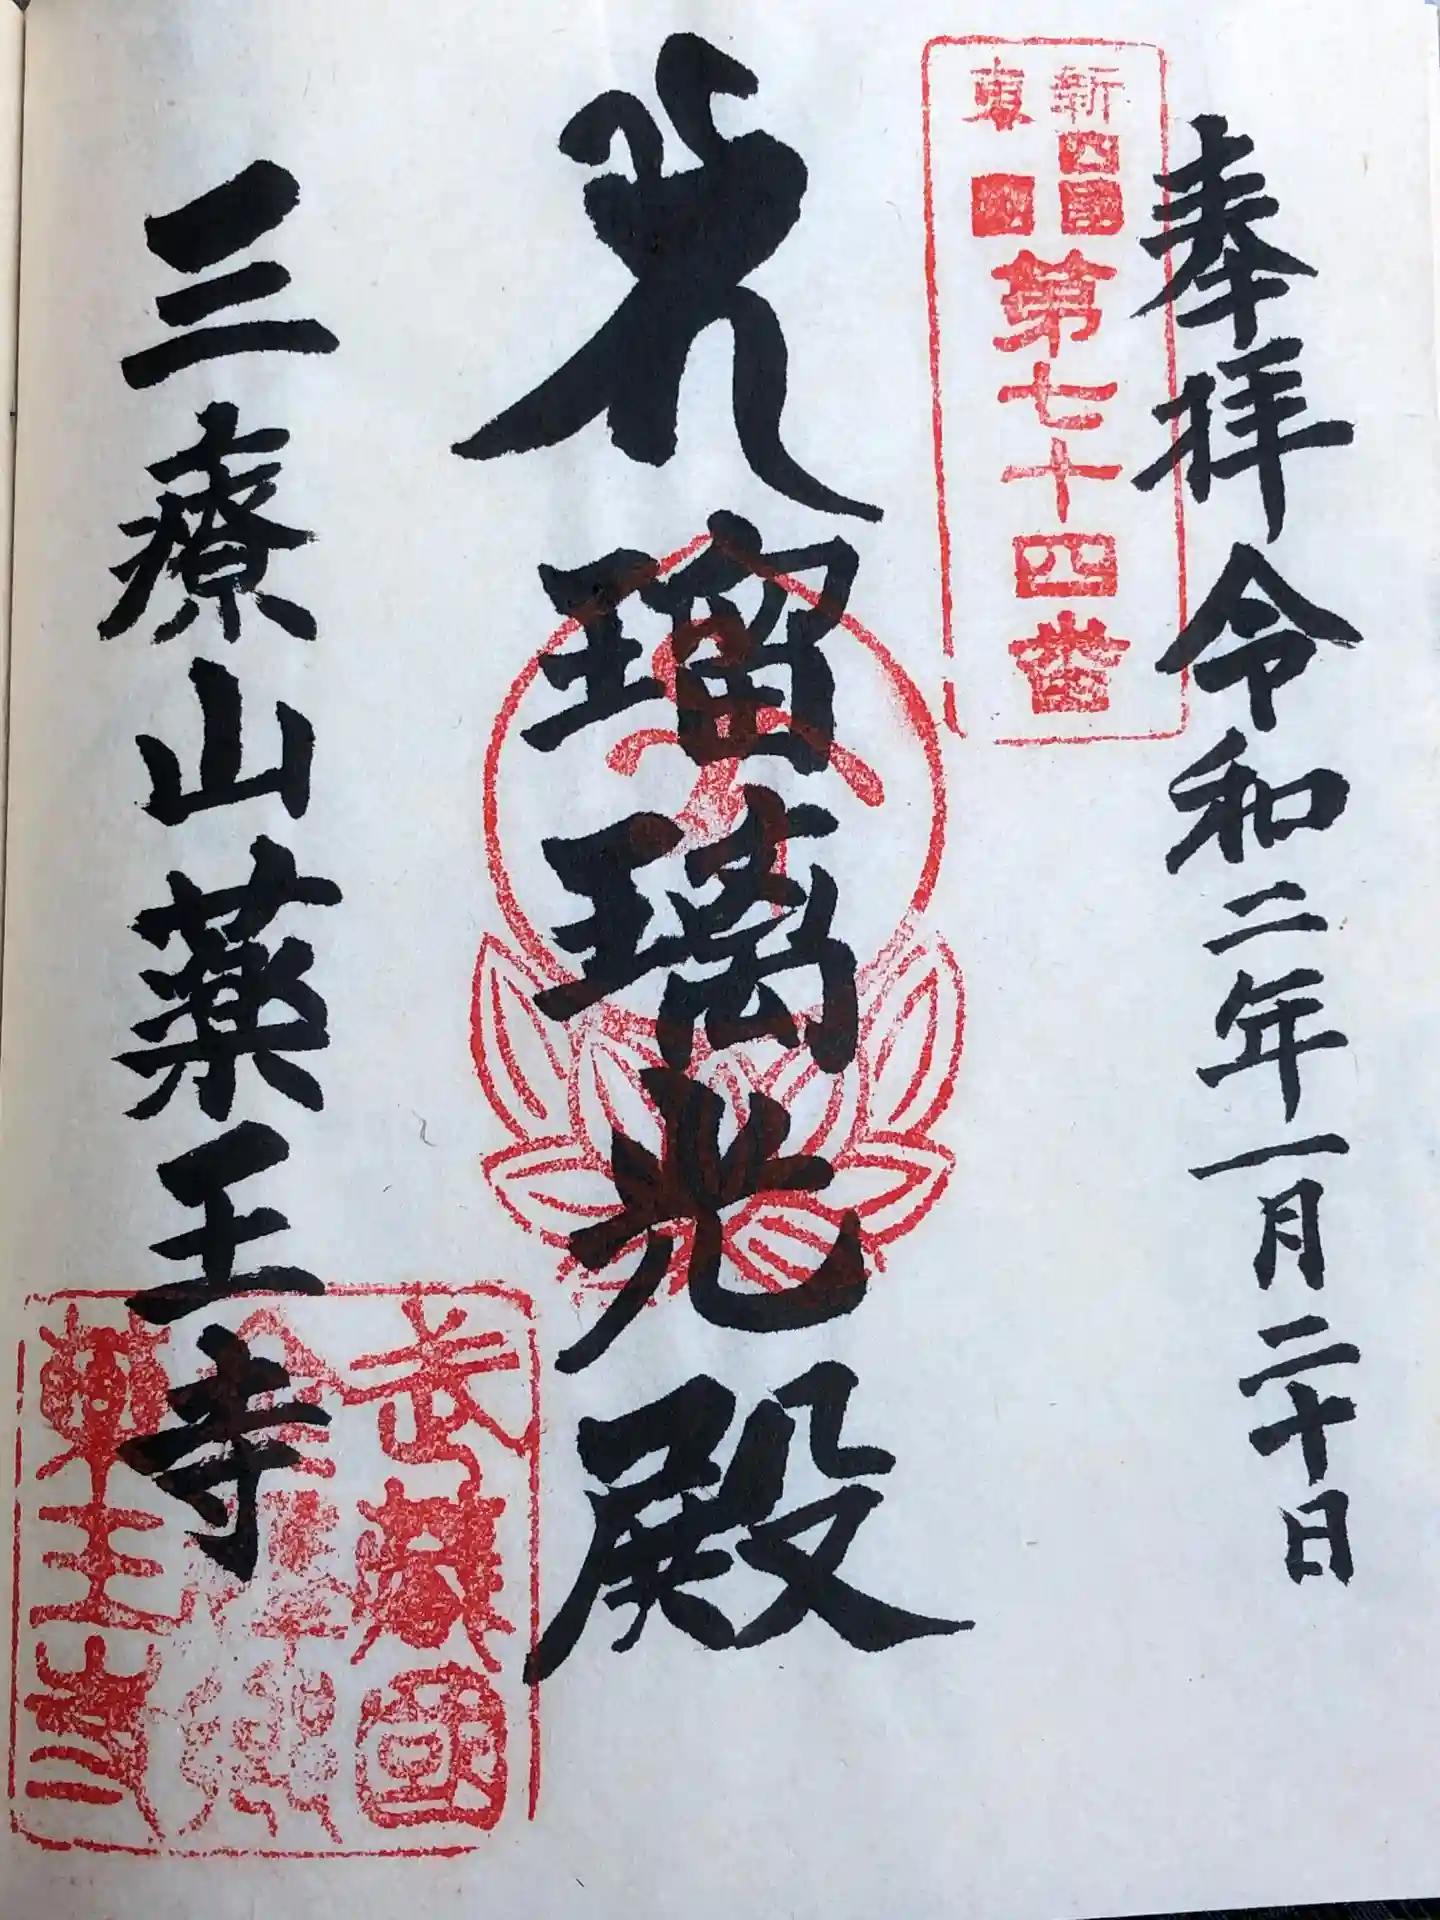 奉拝令和二年一月二十日
新四国
東
第七十四番
瑠璃光殿
三療山薬王寺
武蔵国
薬王寺